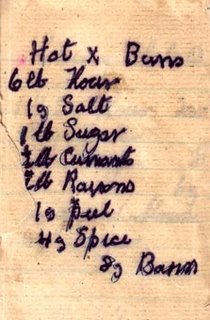 Hot X Buns
6 lb Flour
1 oz Salt
1 lb Sugar
½ lb Currants
½ lb Raisons
1 oz peel
4 oz Spice
8 oz Barm